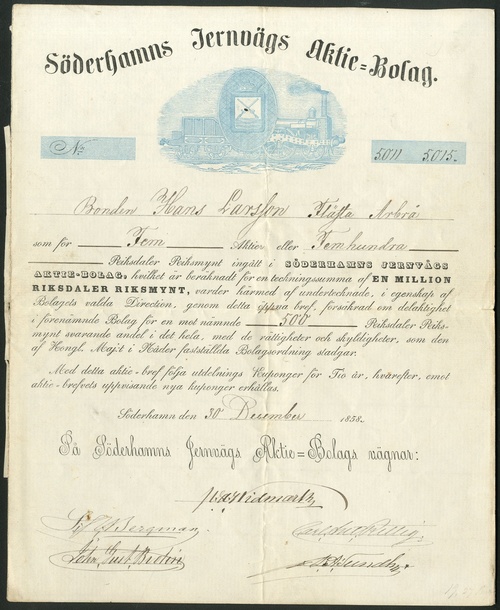 Söderhamns Jernvägs Aktie=Bolag.
No. 5011 5015.
Bonden Hans Larsson Flästa Arbrå
som för Fem Aktier eller Femhundra
Riksdaler Riksmynt ingått i SÖDERHAMNS JERNVÄGS
AKTIE-BOLAG, hvilket är beräknadt för en teckningssumma af EN MILLION
RIKSDALER RIKSMYNT, varder härmed af undertecknade, i egenskap af
Bolagets valda Direction, genom detta öppna bref, försäkrad om delaktighet
i förenämnde Bolag för en mot nämnde 500 Riksdaler Riks-
mynt svarande andel i det hela, med de rättigheter och skyldigheter, som den
af Kongl. Maj:t i Nåder fastställda Bolagsordning stadgar.
Med detta aktie-bref följa utdelnings Kuponger för Tio år, hvarefter, emot
aktie-brefvets uppvisande nya kuponger erhållas.
Söderhamn den 30 December 1858.
På Söderhamns Jernvägs Aktie=Bolags vägnar:
Widmark
Bergman
Carl Ant Rettig
John Gust Brolin